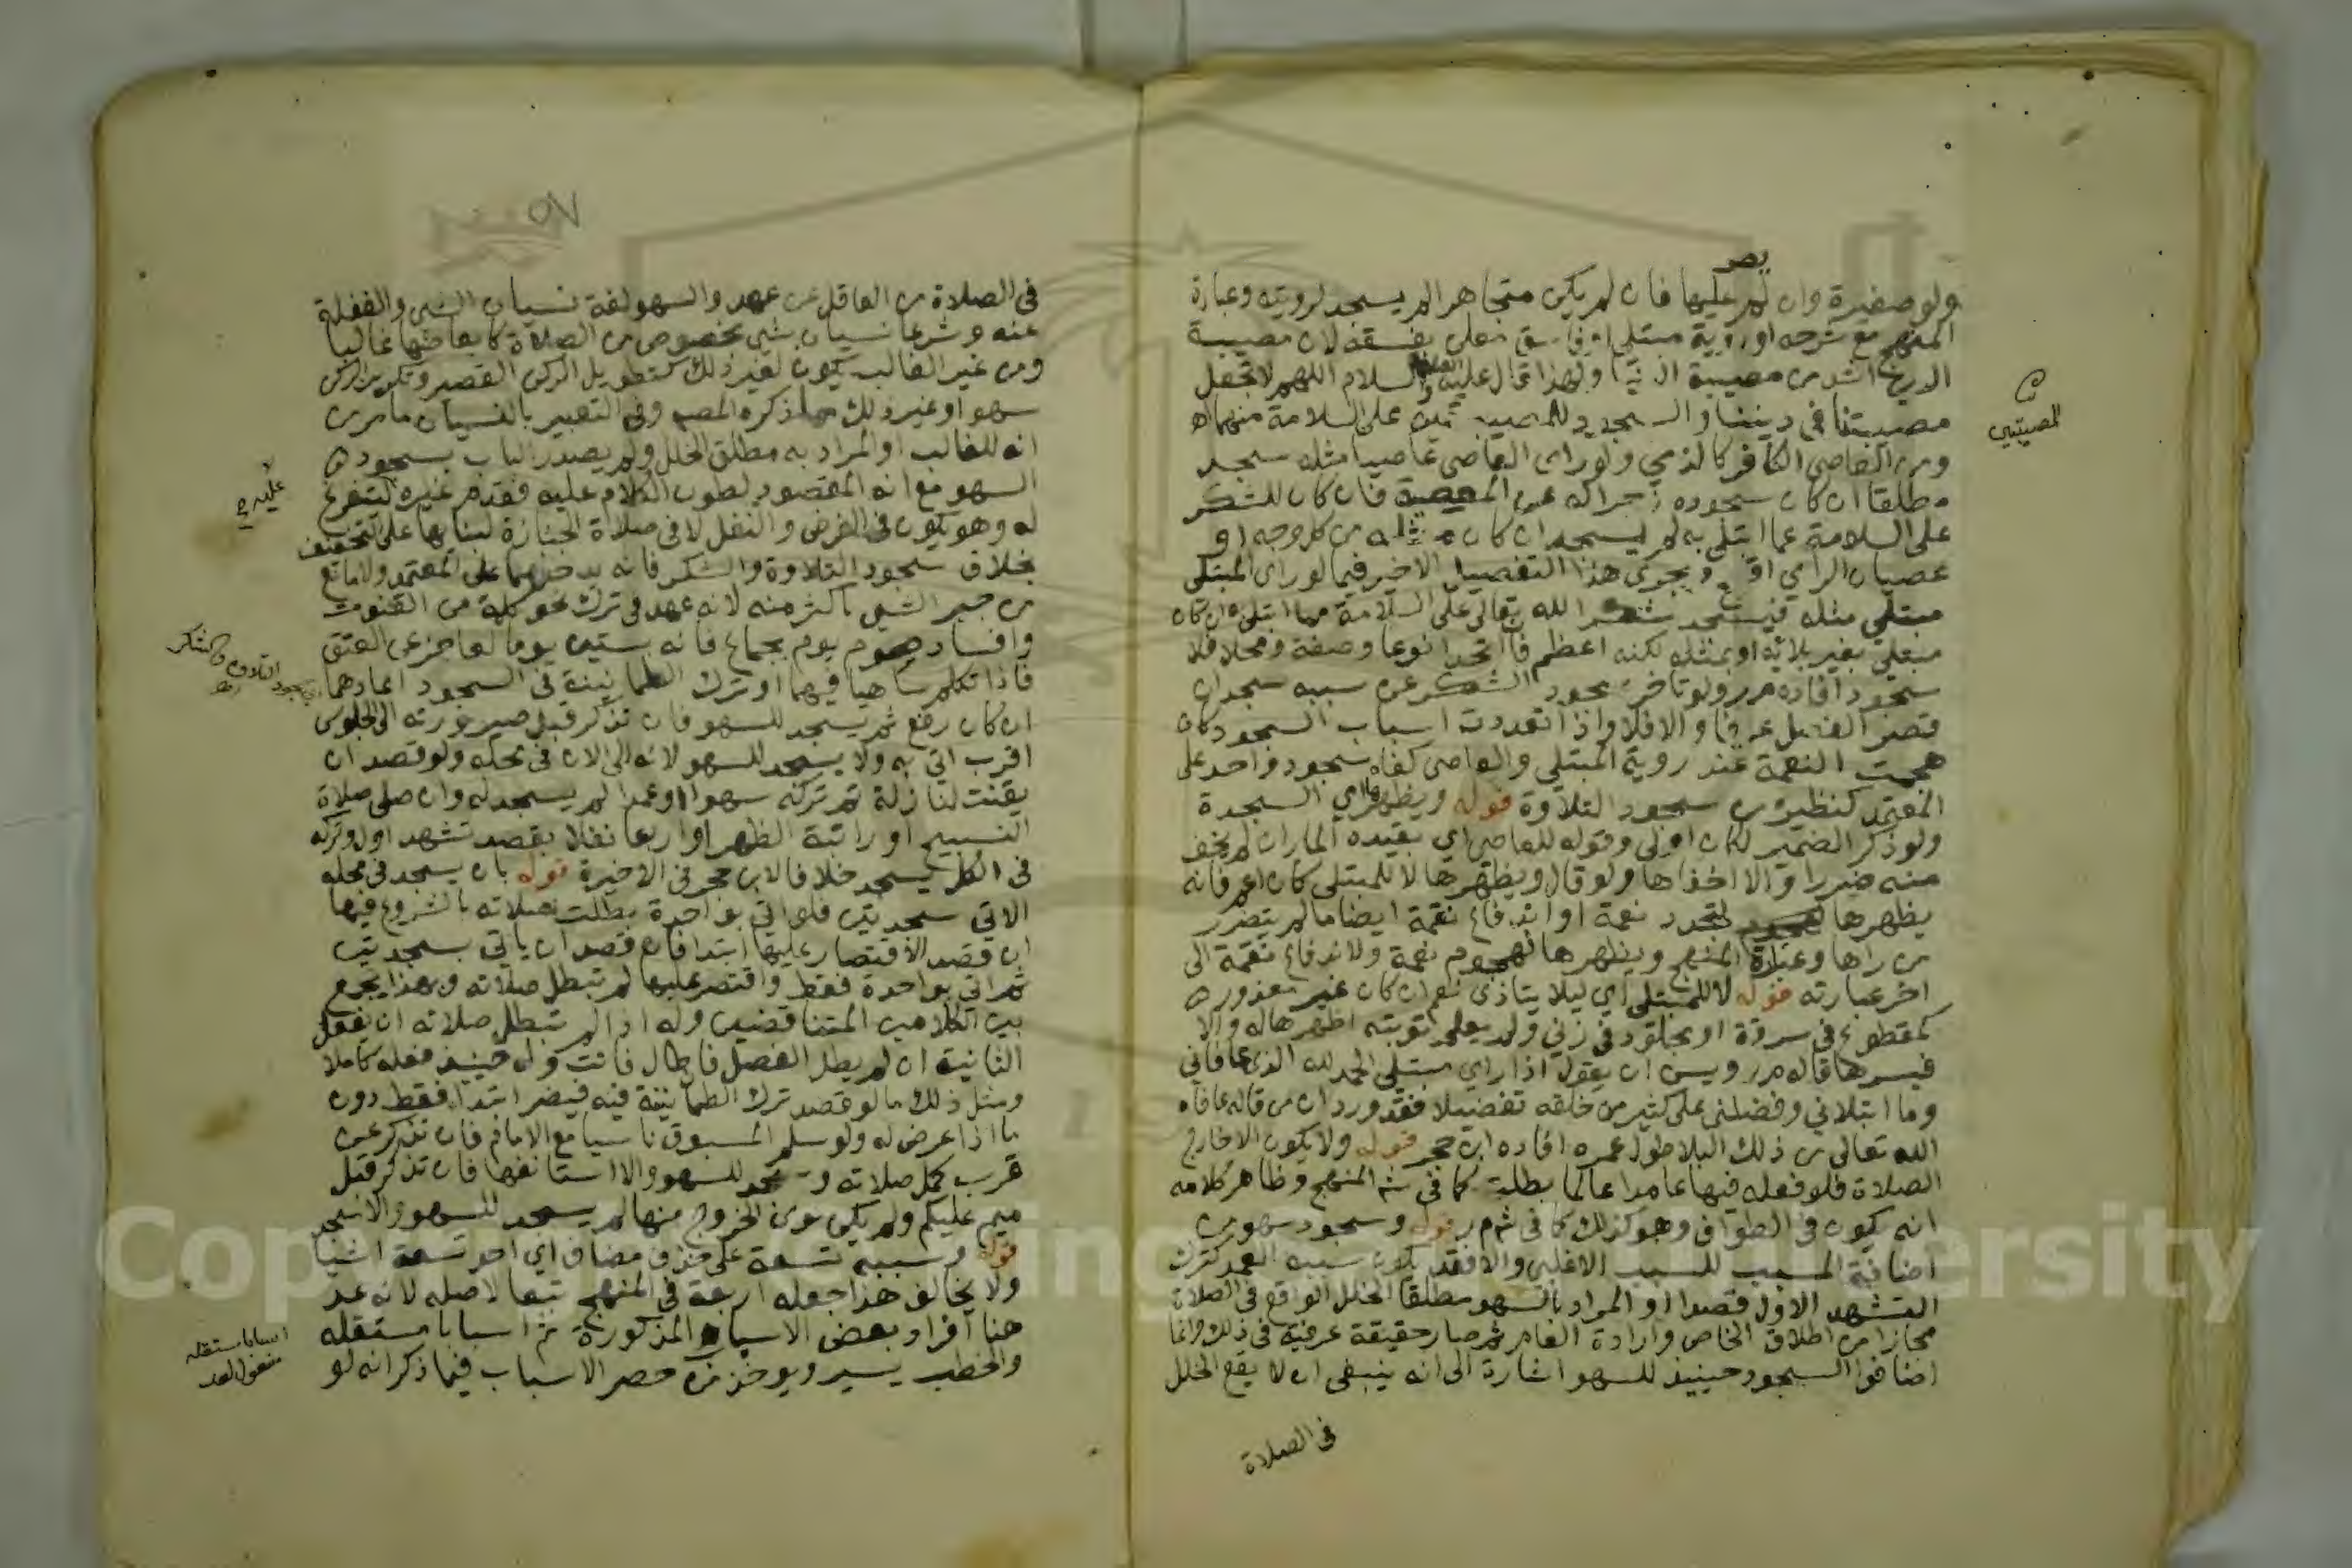 يصر
ولو صغيرة وان لم عليها فان لم يكن متجاهرا لم يسجد لرويته وعبارة
المنهج مع شرحه او روية مبتلى او فاسق معلن بفسقه لان مصيبة
الدين اشد من مصيبة الدنيا ولهذا قال عليه الصلاة والسلام اللهم لا تجعل
مصيبتنا في ديننا والسجود للمصيبتين على السلامة منهما اه
المصيبتين
ومن العاصي الكافر كالذمي ولو راى العاصي عاصيا مثله سجد
مطلقا ان كان سجوده زجرا له عن المعصية فان كان للشكر
على السلامة مما ابتلي به لم يسجد ان كان مثله من كل وجه او
عصيان الرأي اقبح ويجري هذا التفصيل الاخير فيما لو راى المبتلى
مبتلى مثله فيسجد شكرا لله تعالى على السلامة مما ابتلى به ان كان
مبتلى بغير بلائه او بمثله لكنه اعظم فان اتحدا نوعا وصفة ومحلا فلا
سجود افاده م ر ولو تاخر سجود الشكر عن سببه سجد ان
قصر الفصل عرفا والا فلا واذا تعددت اسباب السجود كان
هجمت النعمة عند روية المبتلى والعاصي كفاه سجود واحد على
المعتمد كنظيره من سجود التلاوة قوله ويظهرها اي السجدة
ولو ذكر الضمير لكان اولى وقوله للعاصي اي بقيده المار ان لم يخف
منه ضررا والا اخفاها ولو قال ويظهرها لا للمبتلى كان اعم فانه
يظهرها لتجدد نعمة او اندفاع نقمة ايضا ما لم يتضرر
من راها وعبارة المنهج ويظهرها لهجوم نعمة ولاندفاع نقمة الى
اخر عبارته قوله لا للمبتلى اي ليلا يتاذى نعم ان كان غير معذور
كمقطوع في سرقة او مجلود في زنى ولم يعلم توبته اظهرها له والا
فيسرها قاله م ر ويسن ان يقول اذا راي مبتلى الحمد لله الذي عافاني
وما ابتلاني وفضلني على كثير من خلقه تفضيلا فقد ورد ان من قاله عافاه
الله تعالى من ذلك البلا طول عمره افاده ابن حجر قوله ولا يكون الا خارج
الصلاة فلو فعله فيها عامدا عالما بطلت كما في ش المنهج وظاهر كلامه
انه يكون في الطواف وهو كذلك كما في ش م ر قوله وسجود سهو من
اضافة المسبب للسبب الاغلب والا فقد يكون سببه العمد كترك
التشهد الاول قصدا او المراد بالسهو مطلقا الخلل الواقع في الصلاة
مجازا من اطلاق الخاص وارادة العام ثم صار حقيقة عرفية في ذلك وانما
اضافوا السجود حينيذ للسهو اشارة الى انه ينبغي ان لا يقع الخلل
في الصلاة
٥٧
في الصلاة من العاقل عن عمد والسهو لغة نسيان الشي والغفلة
عنه وشرعا نسيان شي مخصوص من الصلاة كابعاضها غالبا
ومن غير الغالب يكون لغير ذلك كتطويل الركن القصير وتكرير الركن
سهوا وغير ذلك مما ذكره المصـ وفي التعبير بالنسيان ما مر من
انه للغالب او المراد به مطلق الخلل ولم يصدر الباب بسجود
السهو مع انه المقصود لطول الكلام عليه فقدم غيره ليتفرغ
عليه
له وهو يكون في الفرض والنفل لا في صلاة الجنازة لبنايها على التخفيف
بخلاف سجود التلاوة والشكر فانه يدخلهما على المعتمد ولا مانع
من جبر الشي باكثر منه لانه عهد في ترك نحو كلمة من القنوت
وافساد صوم يوم بجماع فانه بستين يوما لعاجز عن العتق
سجود التلاوة والشكر
فاذا تكلم ساهيا فيهما او ترك الطمانينة في السجود اعادهما
ان كان رفع ثم يسجد للسهو فان تذكر قبل صيرورته الى الجلوس
اقرب اتي به ولا يسجد للسهو لانه الى الان في محله ولو قصد ان
يقنت لنازلة ثم تركه سهوا او عمدا لم يسجد له وان صلى صلاة
التسبيح او راتبة الظهر اربعا نفلا بقصد تشهد اول وتركه
في الكل يسجد خلافا لابن حجر في الاخيرة قوله بان يسجد في محله
الاتي سجدتين فلو اتي بواحدة بطلت صلاته بالشروع فيها
ان قصد الاقتصار عليها ابتدا فان قصد ان ياتي بسجدتين
ثم اتي بواحدة فقط واقتصر عليها لم تبطل صلاته وبهذا يجمع
بين الكلامين المتناقضين وله اذا لم تبطل صلاته ان يفعل
الثانية ان لم يطل الفصل فان طال فاتت وله حينيذ فعله كاملا
ومثل ذلك ما لو قصد ترك الطمانينة فيه فيضر ابتدا فقط دون
ما اذا عرض له ولو سلم المسبوق ناسيا مع الامام فان تذكر عن
قرب كمل صلاته وسجد للسهو والا استانفها فان تذكر قبل
ميم عليكم ولم يكن نوى الخروج منها لم يسجد للسهو والا سجد
قوله وسببه تسعة على حذف مضاف اي احد تسعة اشيا
ولا يخالف هذا جعله اربعة في المنهج تبعا لاصله لانه عد
هنا افراد بعض الاسباب المذكورة ثم اسبابا مستقله
اسبابا مستقله
مفعول لعد
والخطب يسير ويوخذ من حصر الاسباب فيما ذكر انه لو